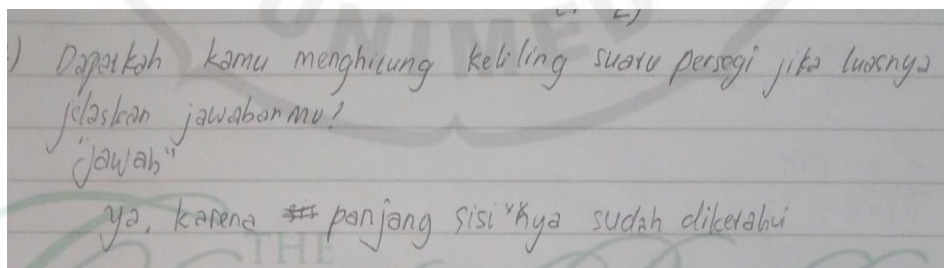 UNIMED
) Dapatkah kamu menghitung keliling suatu persegi jika luasnya
jelaskan jawabanmu?
"jawab"
ya, karena panjang sisi"nya sudah diketahui
THE